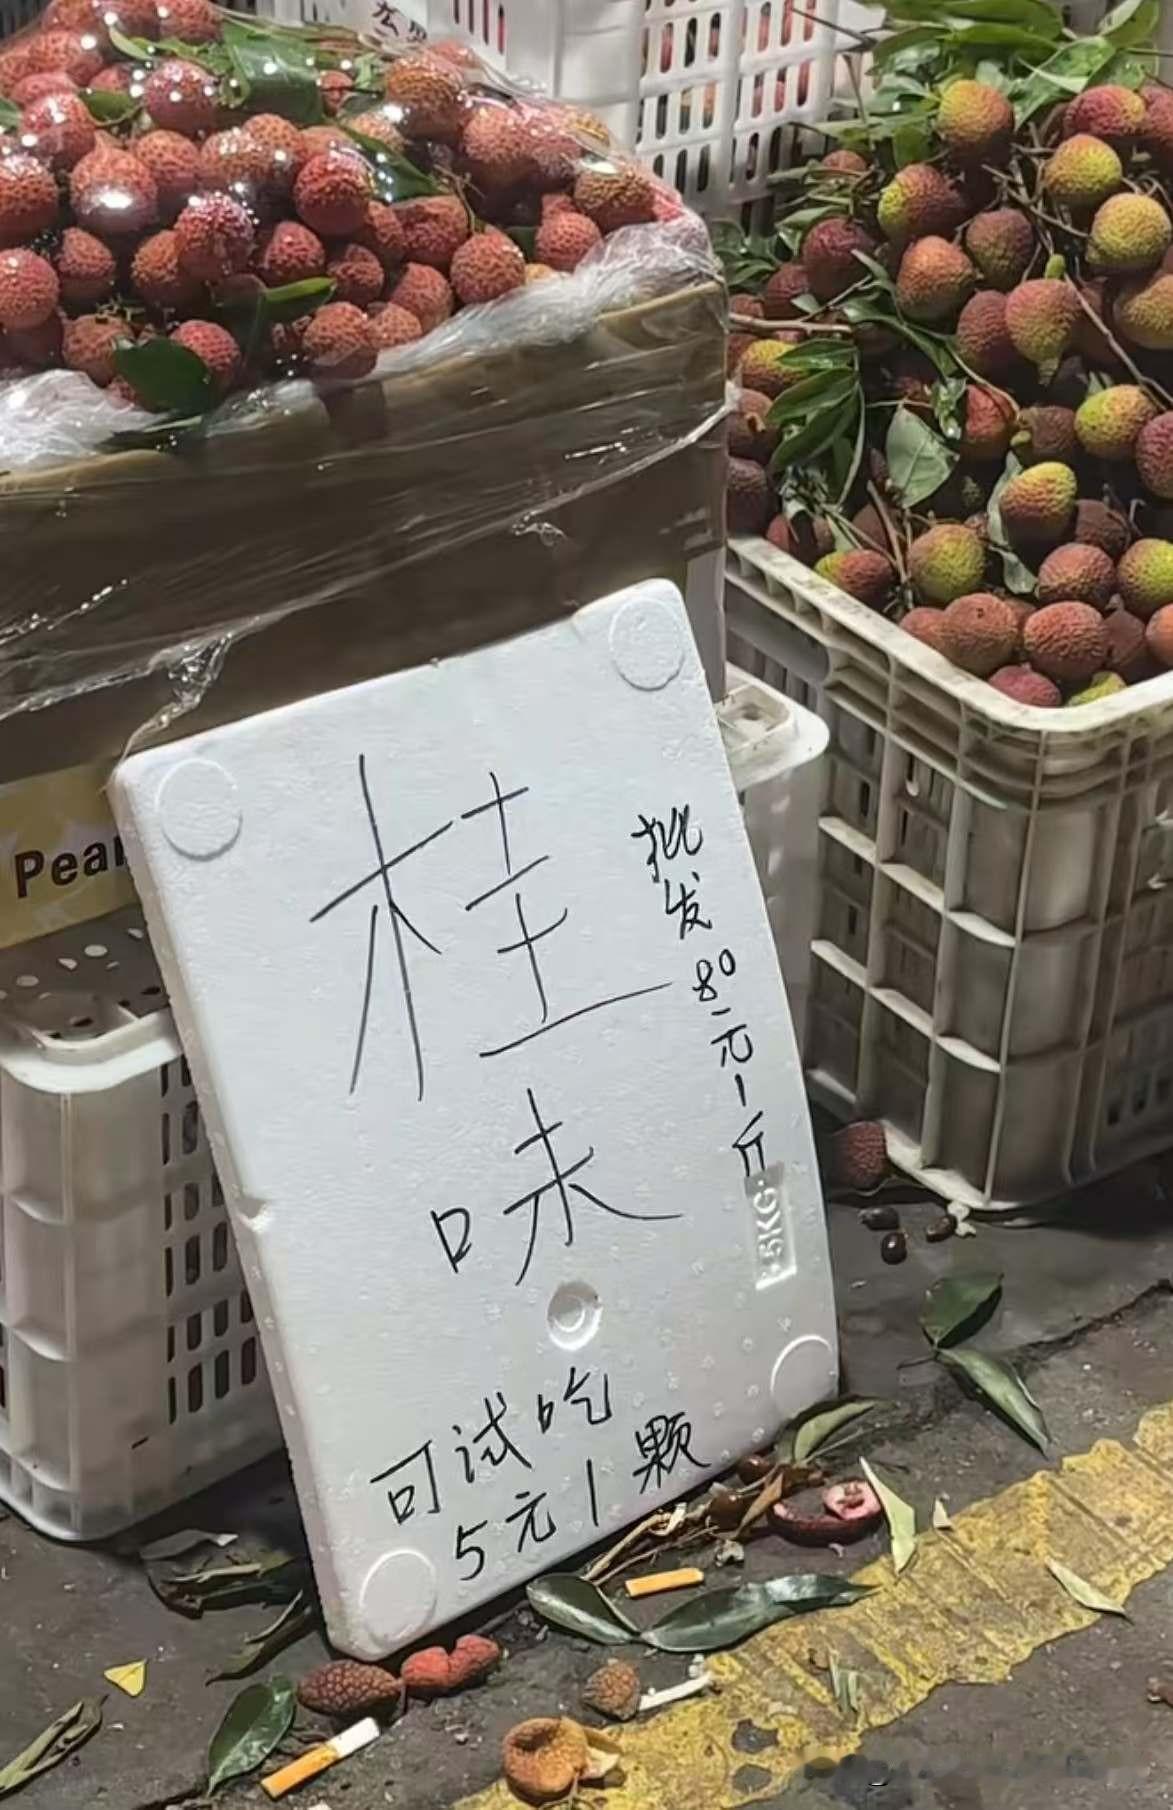 桂味
批发80元1斤
可试吃
5元1颗
.5KG.
Pear